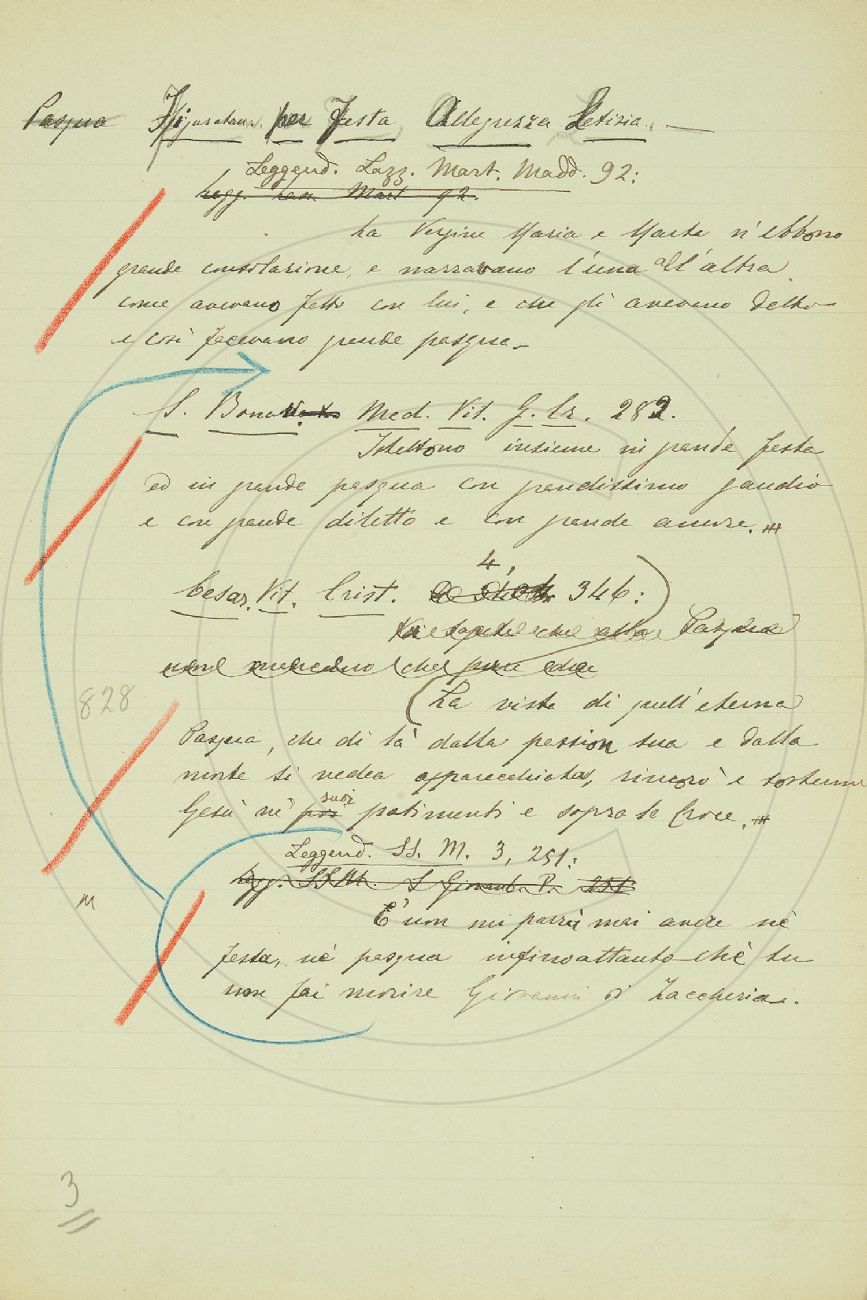 Pasqua Figuratam. per Festa, Allegrezza Letizia. —
Leggend. Lazz. Mart. Madd. 92:
Legg. Lazz. Mart. 92.
La Vergine Maria e Marta n'ebbono
grande consolazione, e narravano l'una all'altra
come avevano fatto con lui, e che gli avevano detto
e così facevano grande pasqua. -
S. Bonav. Med. Vit. G. Cr. 282.
Istettono insieme in grande festa
ed in grande pasqua con grandissimo gaudio
e con grande diletto e con grande amore.
4,
Cesar. Vit. Crist. 346:
Pasqua
La vista di quell'eterna
828
Pasqua, che di là dalla passion sua e dalla
morte si vedea apparecchiata, rincorò e sostenne
Gesù ne' suoi patimenti e sopra la Croce.
Leggend. SS. M. 3, 251:
Legg. SS. M. S. Giovanb. P. 251
M
E' non mi parrà mai avere nè
festa, nè pasqua infinoattanto chè tu
non fai morire Giovanni di Zaccheria.
3